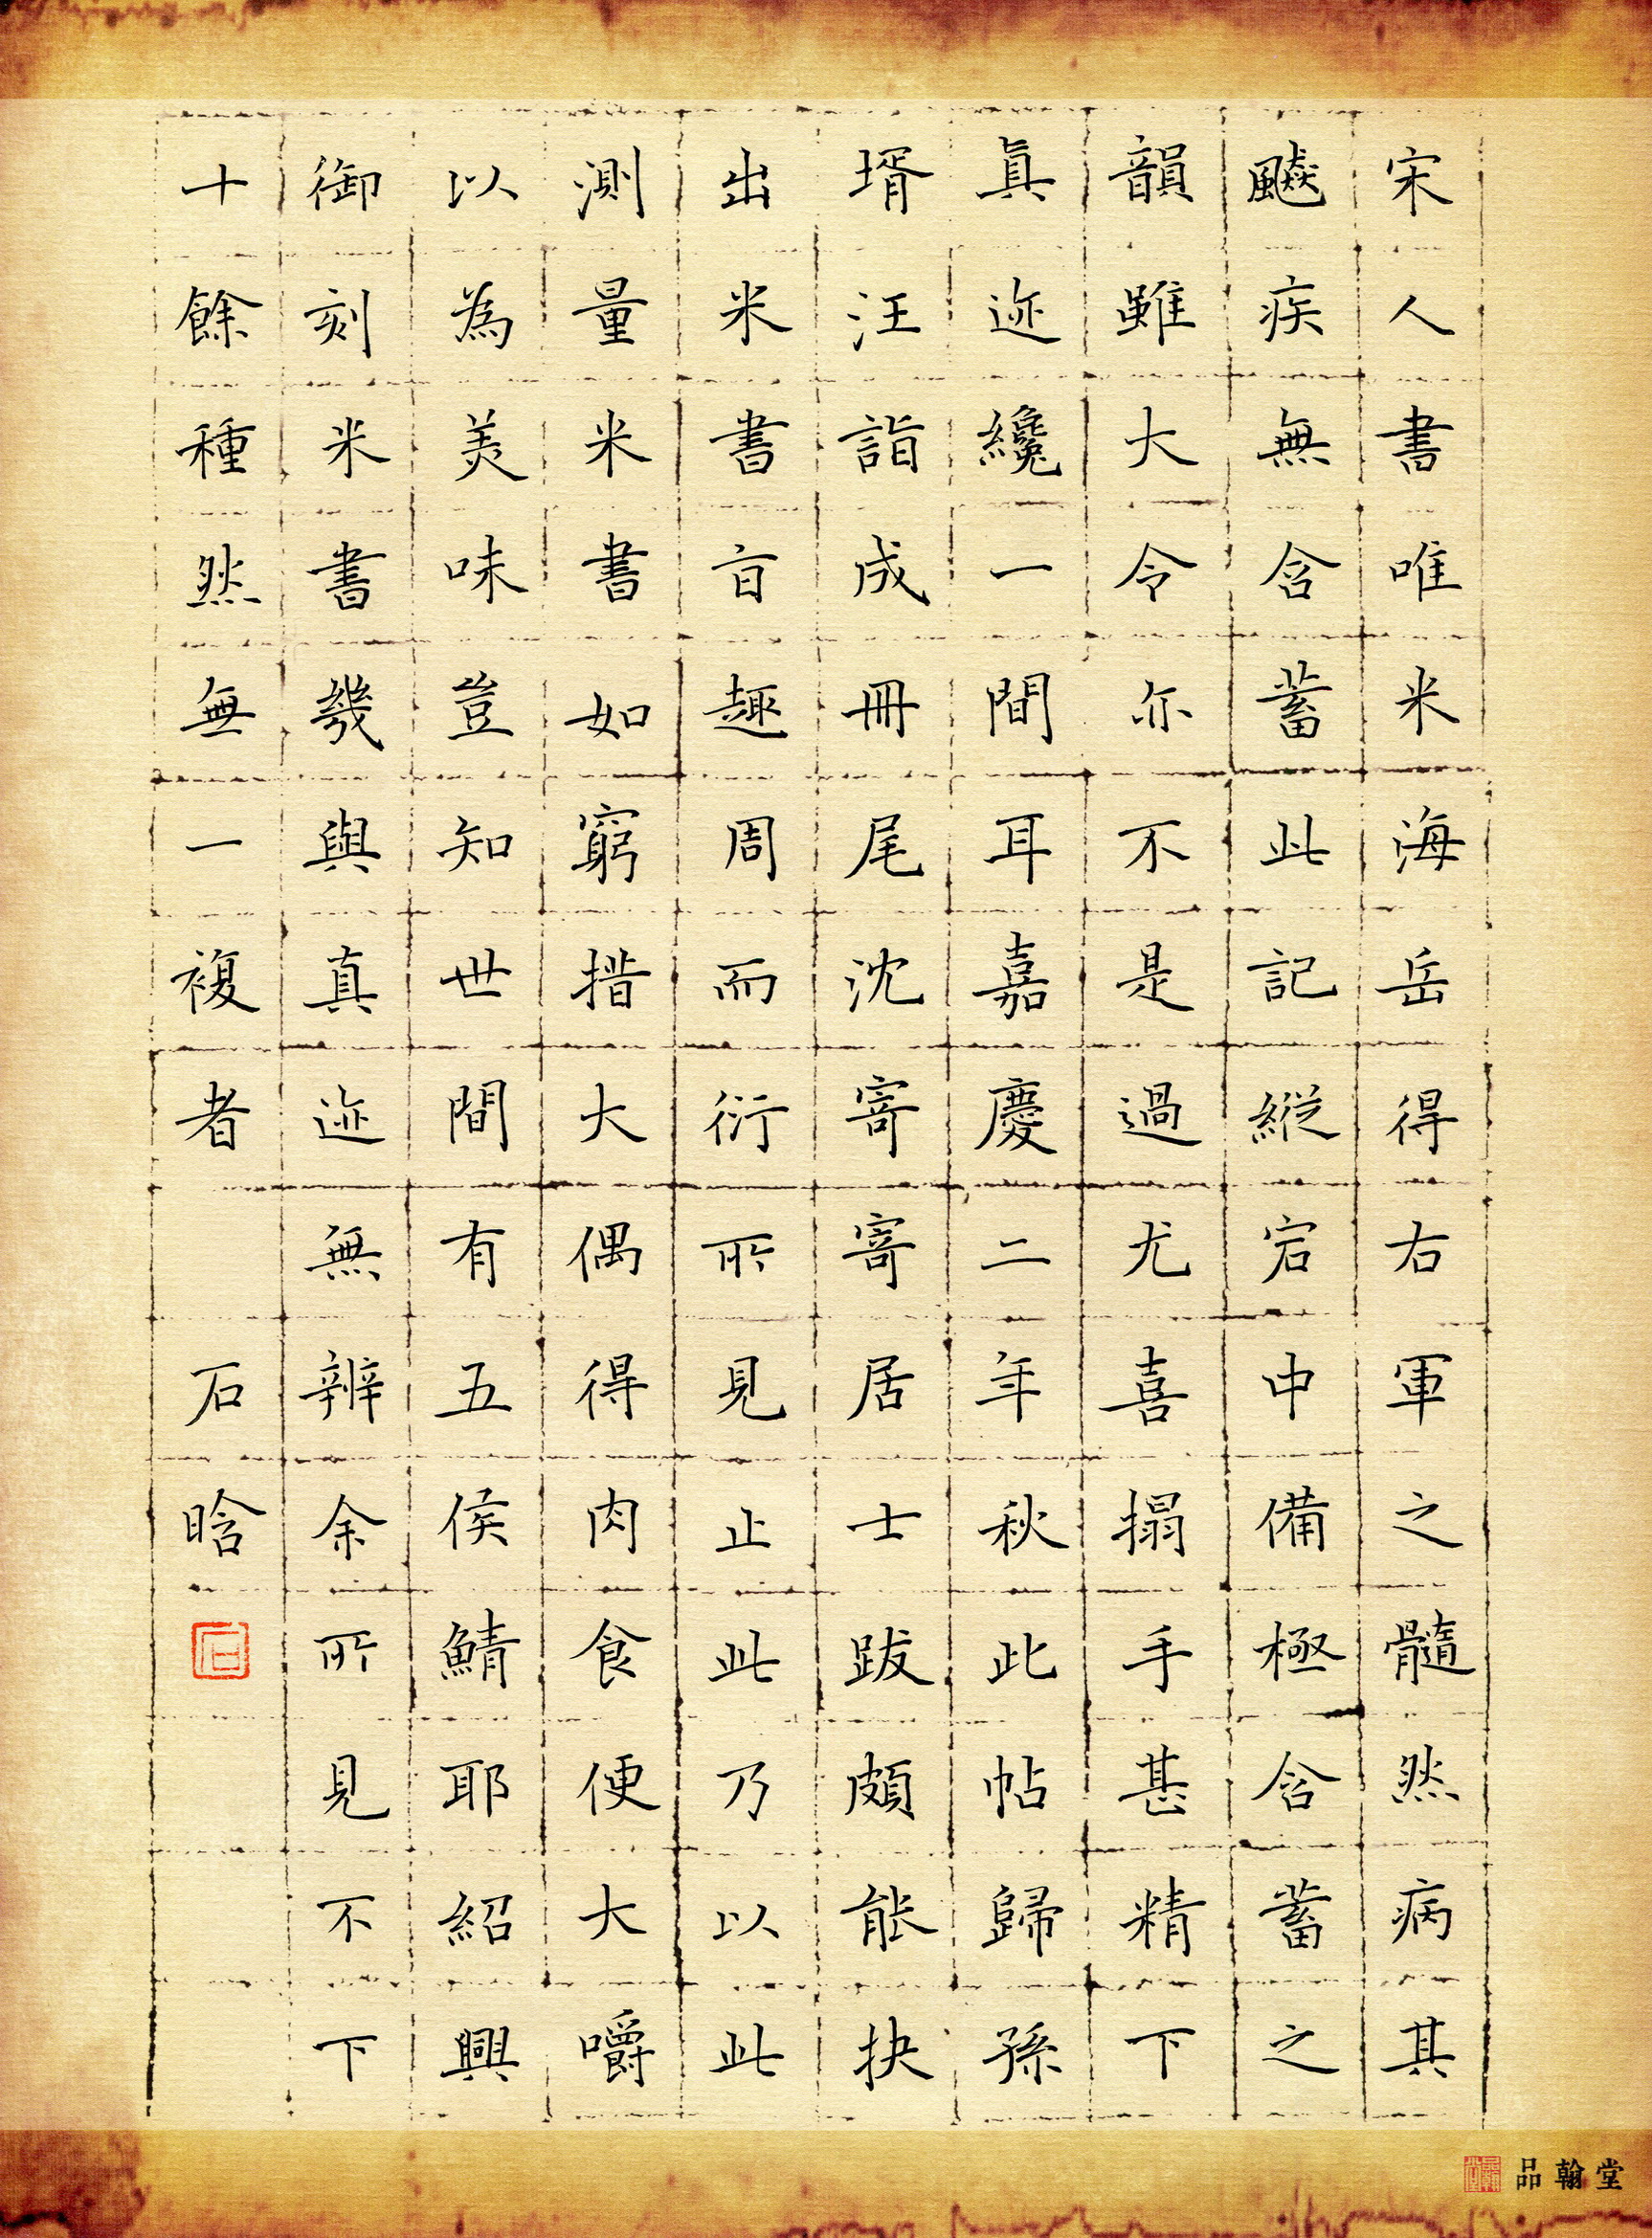 宋人書唯米海岳得右軍之髓然病其
飇疾無含蓄此記縱宕中備極含蓄之
韻雖大令亦不是過尤喜搨手甚精下
真迹纔一間耳嘉慶二年秋此帖歸孫
壻汪詣成冊尾沈寄寄居士跋頗能抉
出米書盲趣周而衍所見止此乃以此
測量米書如窮措大偶得肉食便大嚼
以為美味豈知世間有五侯鯖耶紹興
御刻米書幾與真迹無辨余所見不下
十餘種然無一複者 石晗
品翰堂